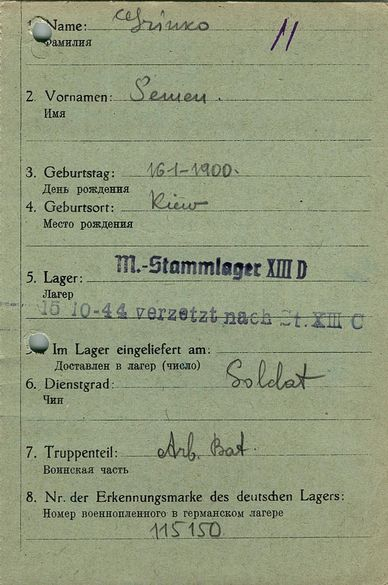 1. Name: Grinko
Фамилия
11
2. Vornamen: Semen.
Имя
3. Geburtstag: 16-1-1900.
День рождения
4. Geburtsort: Kiew
Место рождения
M.-Stammlager XIII D
5. Lager:
Лагер
15 10-44 verzetzt nach St. XIII C
Im Lager eingeliefert am:
Доставлен в лагер (число)
6. Dienstgrad: Soldat
Чин
7. Truppenteil: Arb. Bat.
Воинская часть
8. Nr. der Erkennungsmarke des deutschen Lagers:
Номер военнопленного в германском лагере
115150